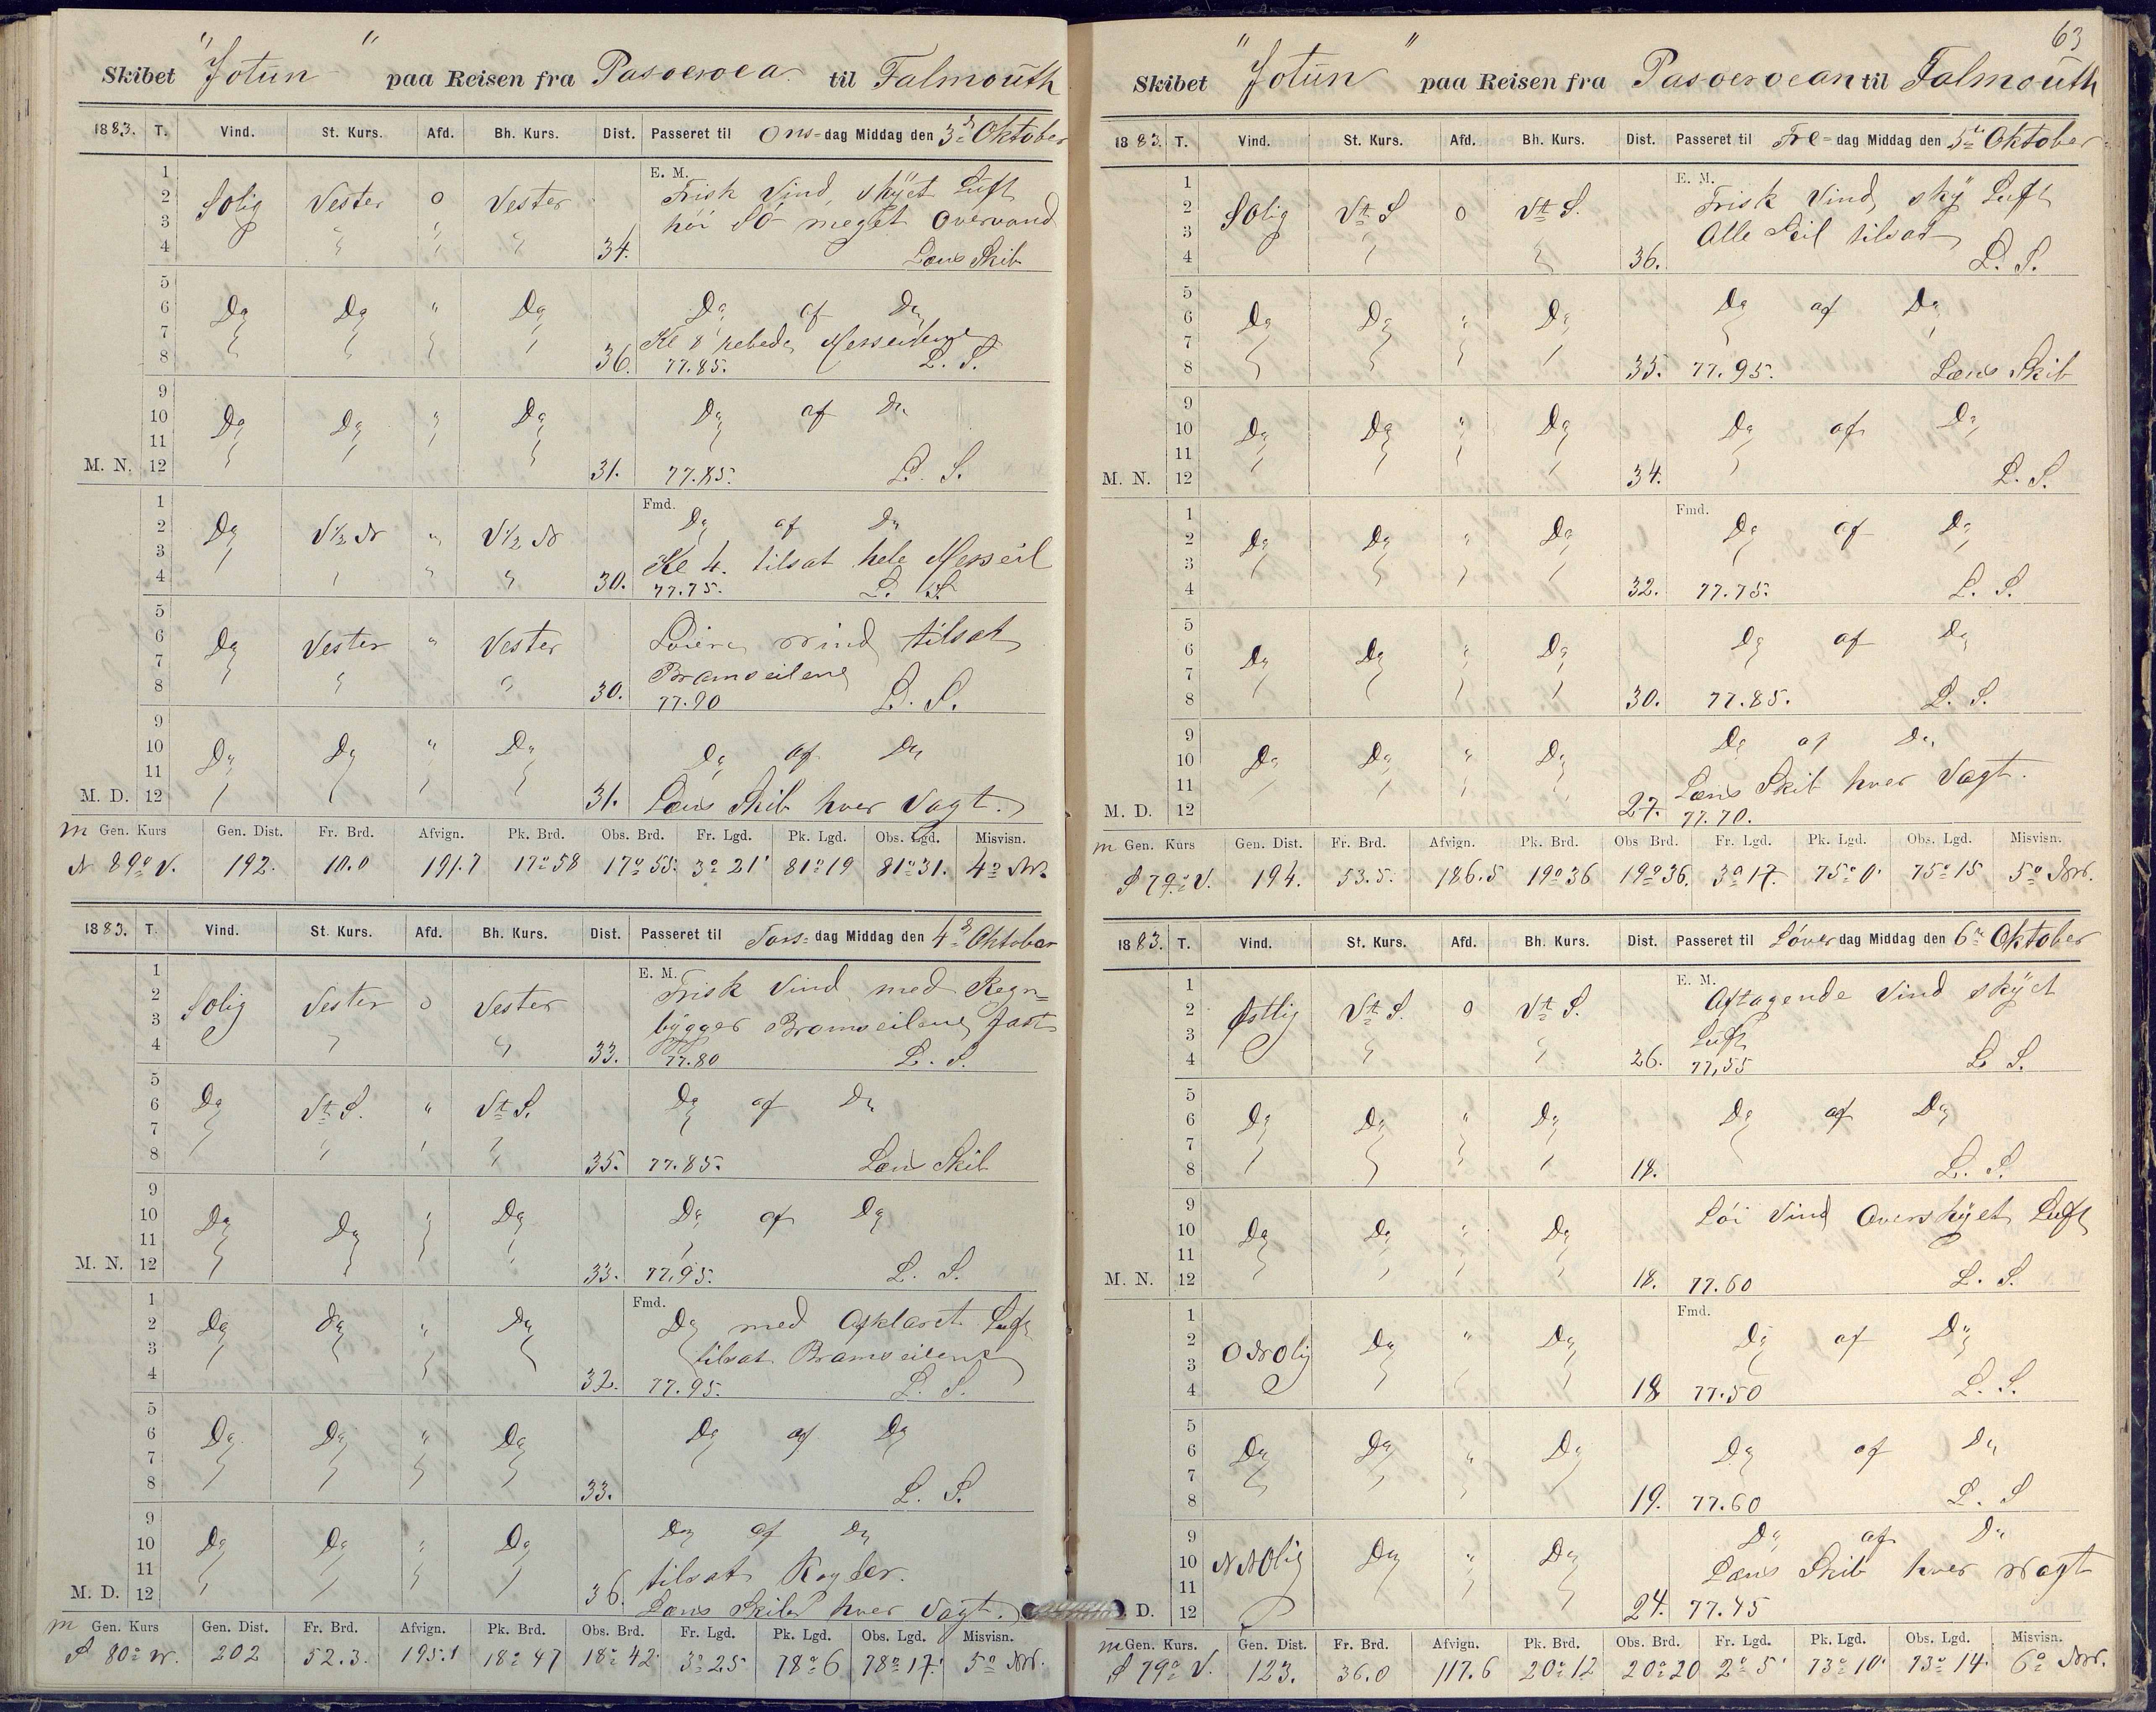 Skibet "Jotun" paa Reisen fra Pasoeroea til Falmouth
1883. T. Vind. St. Kurs. Afd. Bh. Kurs. Dist. Passeret til Ons-dag Middag den 3de Oktober
E. M.
1 2 3 4 SOlig Vester 0 Vester 34. Frisk Vind, skÿet Luft
høi SÖ meget Overvand
Læns Skib
5 6 7 8 Do Do " Do 36. Do af Do
Kl 8 rebede Merseilene
77.85. L. S.
9 10 11 M. N. 12 Do Do " Do 31. Do af Do
77.85. L. S.
Fmd.
1 2 3 4 Do V 1/2 N " V 1/2 N 30. Do af Do
Kl 4. tilsat hele Merseil
77.75. L. S.
5 6 7 8 Do Vester " Vester 30. Löiere vind tilsat
Bramseilene
77.90 L. S.
9 10 11 M. D. 12 Do Do " Do 31. Do af Do
Læns Skib hver Vagt.
m Gen. Kurs Gen. Dist. Fr. Brd. Afvign. Pk. Brd. Obs. Brd. Fr. Lgd. Pk. Lgd. Obs. Lgd. Misvisn.
N 89° V. 192. 10.0 191.7 17°58 17°55. 3°21' 81°19 81°31. 4° NV.
1883. T. Vind. St. Kurs. Afd. Bh. Kurs. Dist. Passeret til Tors-dag Middag den 4de Oktober
E. M.
1 2 3 4 SOlig Vester 0 Vester 33. Frisk Vind med Regn=
bÿgger Bramseilene fast
77.80 L. S.
5 6 7 8 Do Vt S. " Vt S. 35. Do af Do
77.85. Læns Skib
9 10 11 M. N. 12 Do Do " Do 33. Do af Do
77.95. L. S.
Fmd.
1 2 3 4 Do Do " Do 32. Do med Opklaret Luft
tilsat Bramseilene
77.95. L. S.
5 6 7 8 Do Do " Do 33. Do af Do
L. S.
9 10 11 M. D. 12 Do Do " Do 36. Do af Do
tilsat Royler.
Læns Skib hver Vagt.
m Gen. Kurs Gen. Dist. Fr. Brd. Afvign. Pk. Brd. Obs. Brd. Fr. Lgd. Pk. Lgd. Obs. Lgd. Misvisn.
S 80° V. 202 52.3. 195.1 18°47 18°42 3°25 78°6 78°17.' 5° NV.
63
Skibet "Jotun" paa Reisen fra Pasoeroean til Falmouth
1883. T. Vind. St. Kurs. Afd. Bh. Kurs. Dist. Passeret til Fre-dag Middag den 5te Oktober
E. M.
1 2 3 4 SOlig Vt S 0 Vt S. 36. Frisk Vind, skÿ Luft
Alle Seil tilsat
L. S.
5 6 7 8 Do Do " Do 35. Do af Do
77.95. Læns Skib
9 10 11 M. N. 12 Do Do " Do 34. Do af Do
L. S.
Fmd.
1 2 3 4 Do Do " Do 32. Do af Do
77.75. L. S.
5 6 7 8 Do Do " Do 30. Do af Do
77.85. L. S.
9 10 11 M. D. 12 Do Do " Do 27. Do af Do
Læns Skib hver Vagt.
77.70.
m Gen. Kurs Gen. Dist. Fr. Brd. Afvign. Pk. Brd. Obs Brd. Fr. Lgd. Pk. Lgd. Obs. Lgd. Misvisn.
S 79° V. 194. 53.5. 186.5 19°36 19°36. 3°17. 75°0' 75°15 5° NV.
1883. T. Vind. St. Kurs. Afd. Bh. Kurs. Dist. Passeret til Löverdag Middag den 6te Oktober
E. M.
1 2 3 4 Østlig Vt S. 0 Vt S. 26. Aftagende Vind skÿet
Luft
77,55 L S.
5 6 7 8 Do Do " Do 18. Do af Do
L. S.
9 10 11 M. N. 12 Do Do " Do 18. Löi Vind Overskÿet Luft
77.60 L. S.
Fmd.
1 2 3 4 ONOlig Do " Do 18 Do af Do
77.50 L. S.
5 6 7 8 Do Do " Do 19. Do af Do
77.60 L. S
9 10 11 D. 12 NNOlig Do " Do 24. Do af Do
Læns Skib hver Vagt
77.45
m Gen. Kurs. Gen. Dist. Fr. Brd. Afvign. Pk. Brd. Obs. Brd. Fr. Lgd. Pk. Lgd. Obs. Lgd. Misvisn.
S 79° V. 123. 36.0 117.6 20°12 20°20 2°5' 73°10' 73°14. 6° NV.